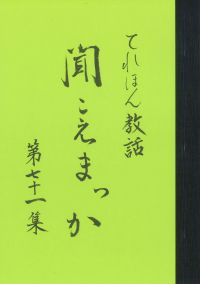 てれほん教話
聞こえまっか
第七十一集